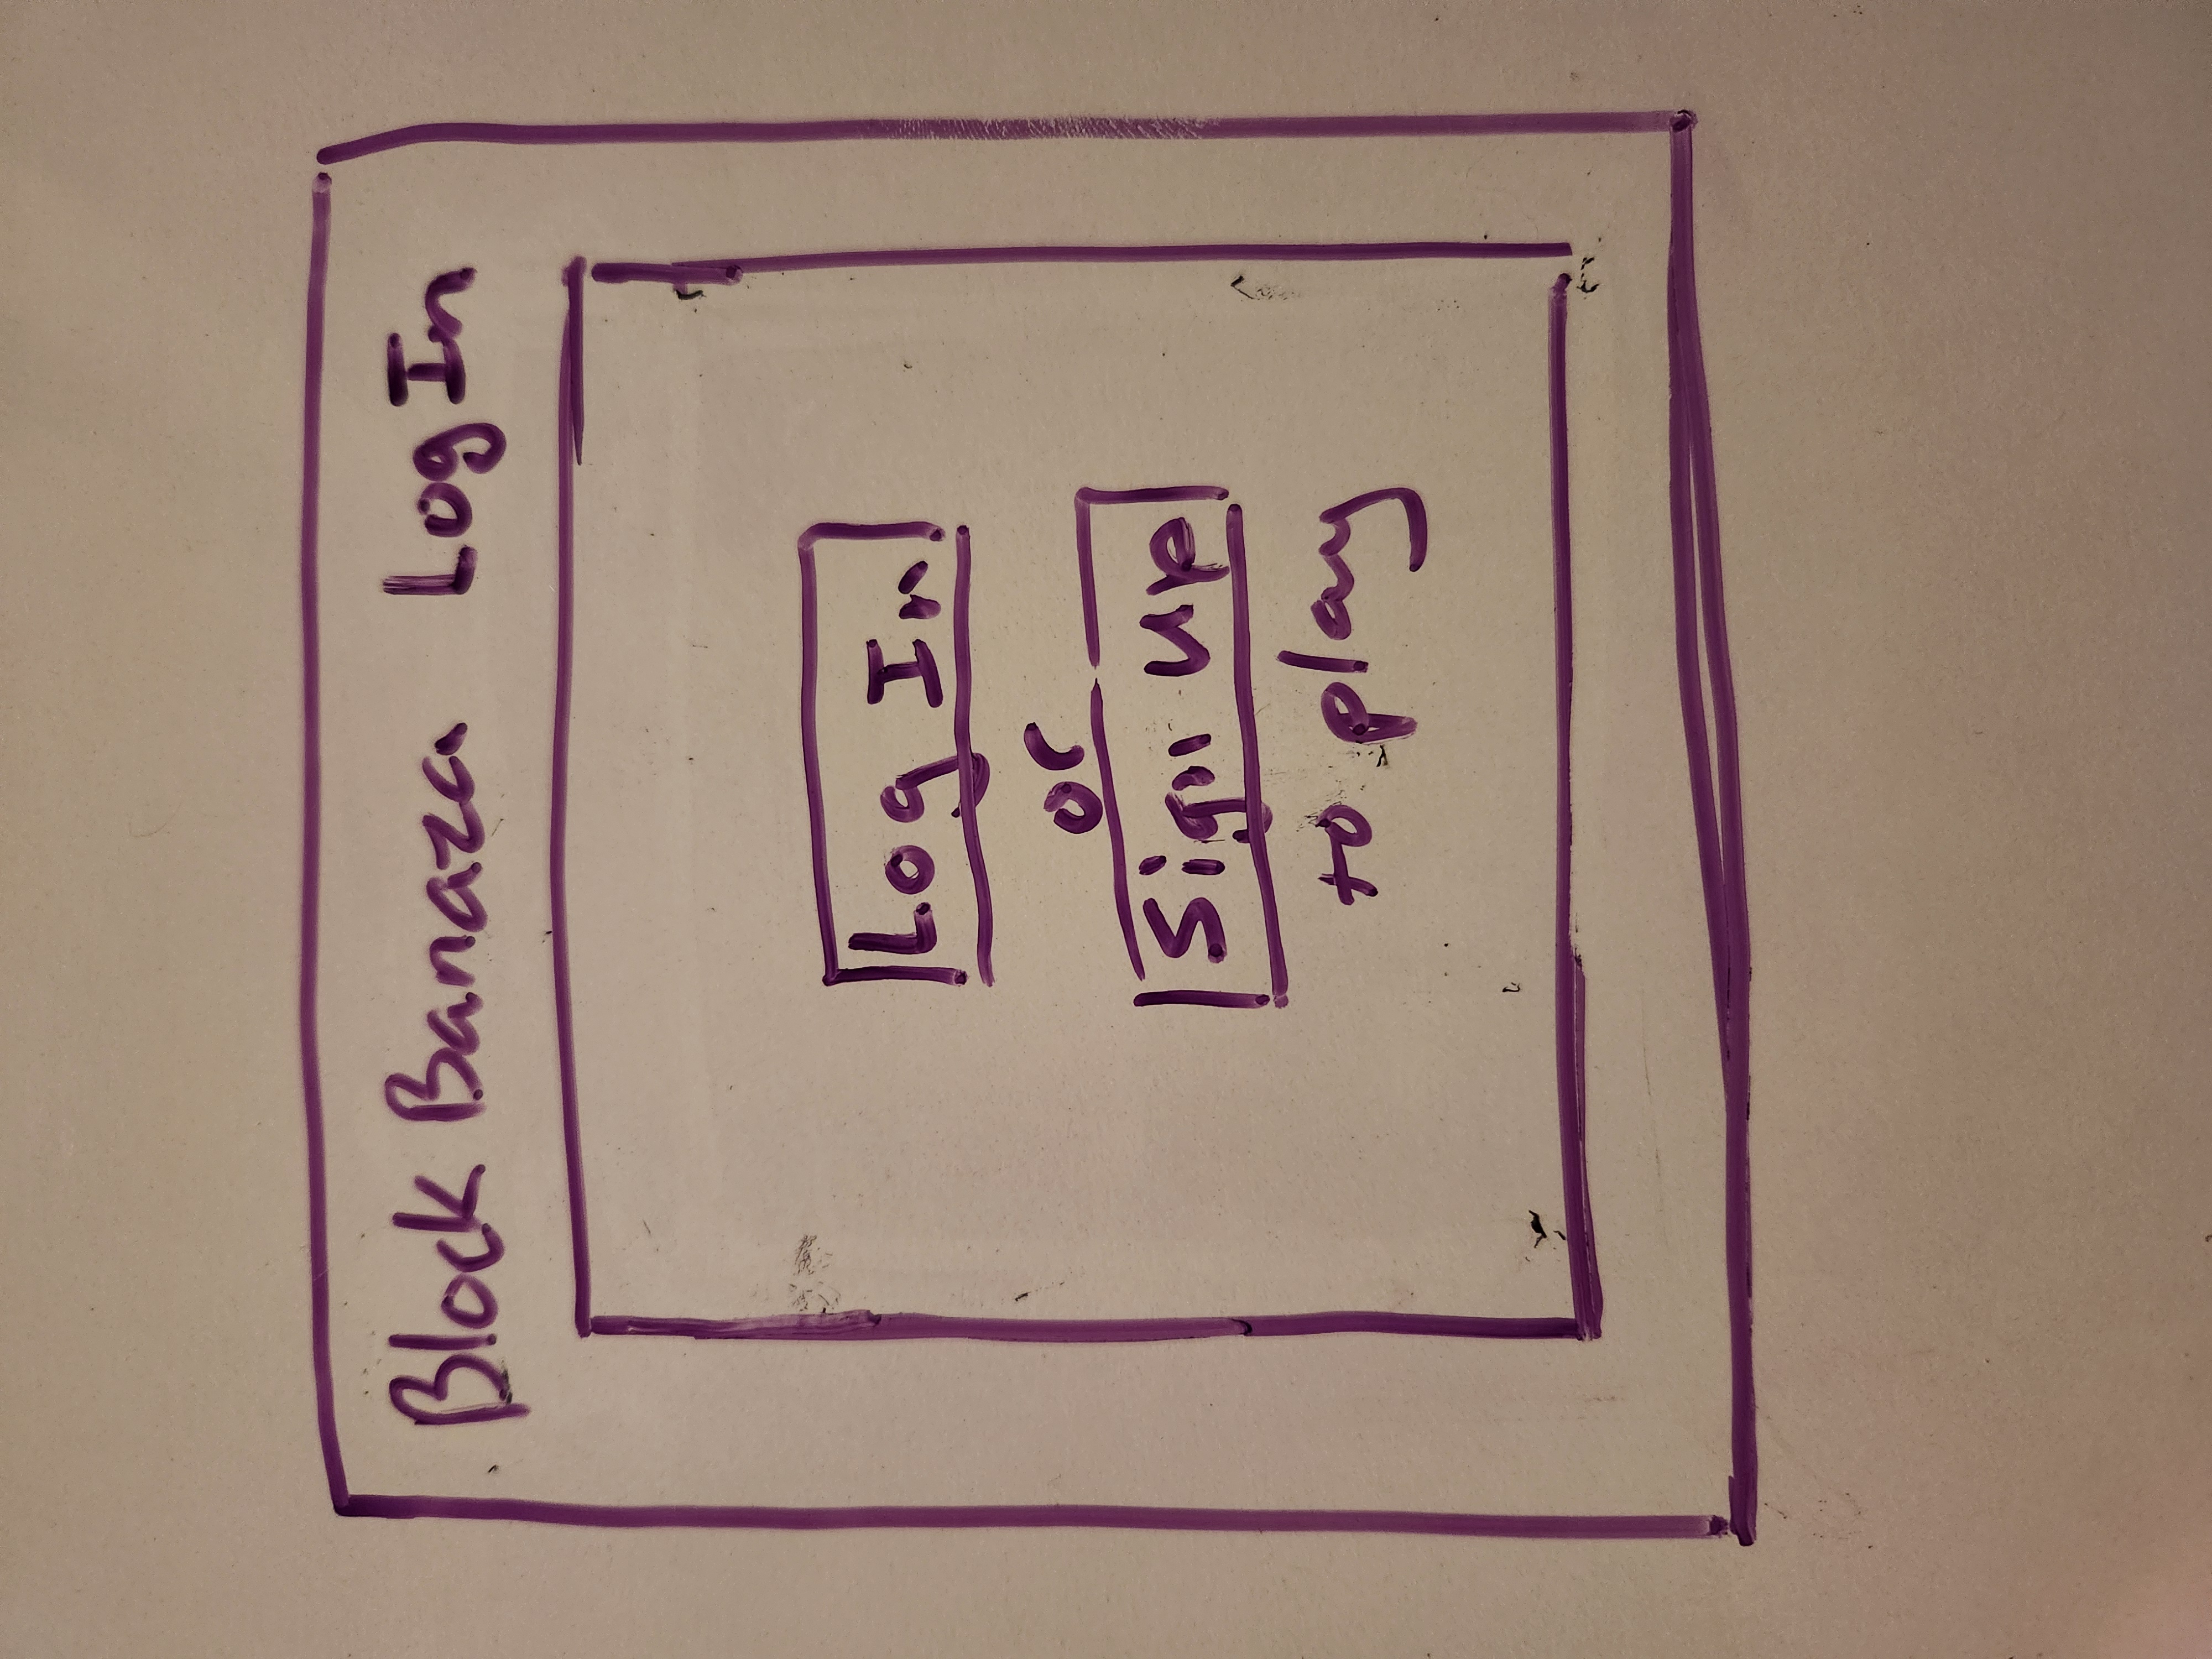 Block Banaza Log In
Log In
or
Sign Up
to play